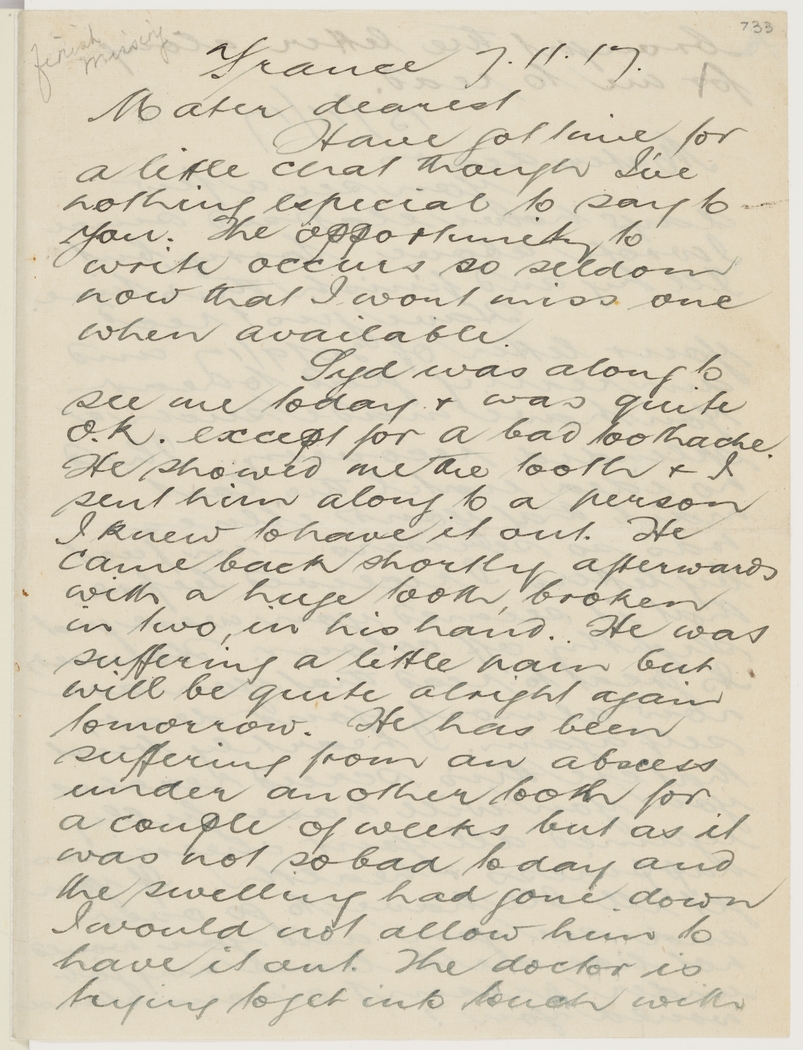 733
France 7.11.17.
Mater dearest
Have got time for
a little chat though I've
nothing especial to say to
you. The opportunity to
write occurs so seldom
now that I wont miss one
when available.
Syd was along to
see me today & was quite
O.K. except for a bad toothache.
He showed me the tooth & I
sent him along to a person
I knew to have it out. He
came back shortly afterwards
with a huge tooth, broken
in two, in his hand. He was
suffering a little pain but
will be quite alright again
tomorrow. He has been
suffering from an abscess
under another tooth for
a couple of weeks but as it
was not so bad today and
the swelling had gone down
I would not allow him to
have it out. The doctor is
trying to get into touch with